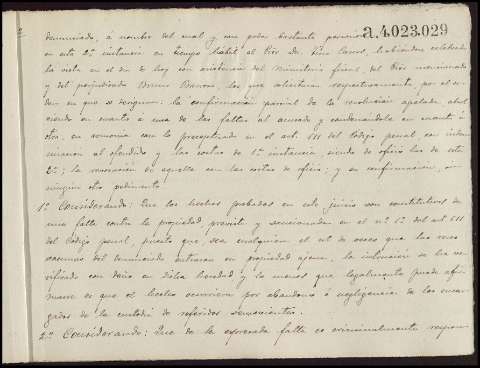 a.4.023.029
denunciado, á nombre del cual y con poder bastante
en esta 2ª instancia en tiempo habil el Pror. Dn. habiendose celebrado
la vista en el dia de hoy con asistencia del Ministerio fiscal, del Pror mencionado
y del perjudicado Bruno los que solicitaron respectivamente, por el or-
den en que se designan: la confirmación parcial de la resolución apelada, absol
viendo en cuanto á una de las faltas al acusado y condenandole en cuanto á
otra, en armonia con lo preceptuado en el art. 611 del Código penal, con indem
nización al ofendido y las costas de 1ª instancia, siendo de oficio las de esta
2ª; la revocación de aquella con las costas de oficio; y su confirmación, sin
ningún otro pedimento.
1º Considerando: Que los hechos probados en este juicio son constitutivos de
una falta contra la propiedad, prevista y sancionada en el nº 1º del art 611
del Código penal, puesto que, sea cualquiera el nº de veces que las reses
vacunas del denunciado entraran en propiedad ajena, la intrusión se ha ve-
rificado con daño en dicha heredad y lo menos que legalmente puede afir-
marse es que el hecho ocurriera por abandono ó negligencia de los encar-
gados de la custodia de referidos semovientes.
2º Considerando: Que de la expresada falta es criminalmente respon-